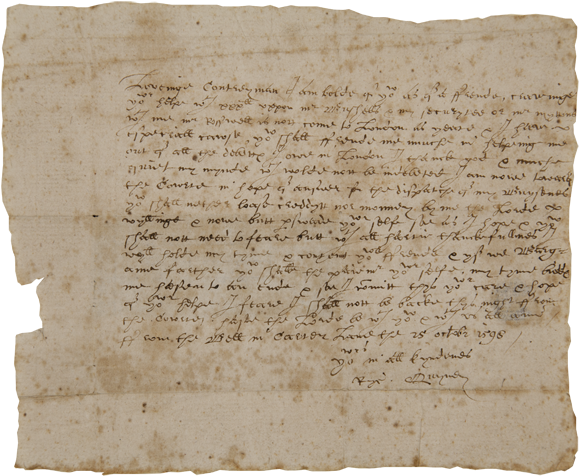 Loveinge Contreyman I am bolde of yow as of a ffrende, craveinge
yowr helpe wth xxxll vppon mr Bushells & my securytee or mr myttons
wth me mr Rosswell is nott come to London as yeate & I have
especiall cawse yow shall ffrende me muche in helpeinge me
out of all the debttes I owe in London I thancke god & muche
quiet my mynde wch wolde nott be indebted I am nowe towardes
the Cowrte in hope of answer for the dispatche of my Buysenes
yow shall nether loase creddytt nor monney by me the Lorde
wyllinge & nowe butt perswade yowr selfe soe as I hope & yow
shall nott need to feare butt wth all hartie thanckefullnes I
wyll holde my tyme & content yowr ffrende & yf we Bargaine
farther yow shalbe the paiemr yowr selfe my tyme biddes
me hasten to an ende & soe I committ thys yowr care & hope
of yowr helpe I feare I shall nott be backe thys night ffrom
the Cowrte haste the Lorde be wth yow & wth us all amen
ffrom the Bell in Carter Lane the 25 octber 1598
yowrs in all kyndenes
Ryc. Quyney